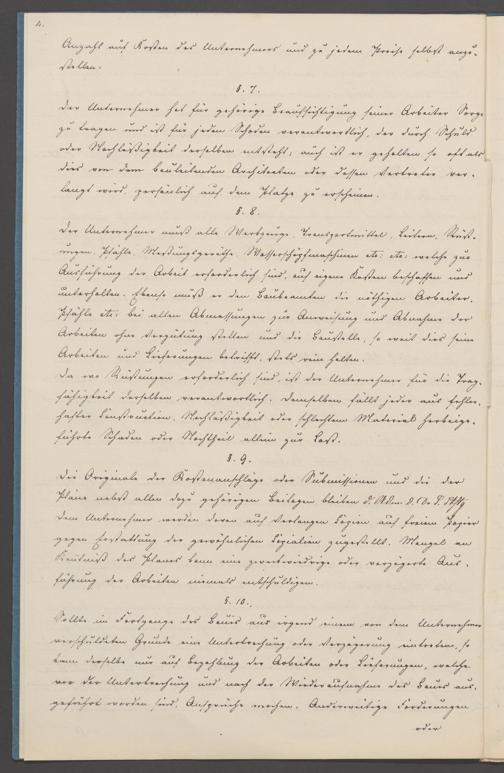 4.
Anzahl auf Kosten des Unternehmers und zu jedem Preise selbst anzu-
stellen.
§. 7.
Der Unternehmer hat für gehörige Beaufsichtigung seiner Arbeiter Sorge
zu tragen und ist für jeden Schaden verantwortlich, der durch Schuld
oder Nachläßigkeit derselben entsteht; auch ist er gehalten so oft als
dies von dem bauleitenden Architecten oder dessen Vertreter ver-
langt wird, persönlich auf dem Platze zu erscheinen.
§. 8.
Der Unternehmer muß alle Werkzeuge, Transportmittel, Leitern, Rüst-
ungen, Pfähle, Meßungsgeräthe, Wasserschöpfmaschinen etc: etc: welche zur
Ausführung der Arbeit erforderlich sind, auf eigene Kosten beschaffen und
unterhalten. Ebenso muß er den Baubeamten die nöthigen Arbeiter,
Pfähle etc: bei allen Abmessungen zur Anweisung und Abnahme der
Arbeiten ohne Vergütung stellen und die Baustelle, so weit dies seine
Arbeiten und Lieferungen betrifft, stets rein halten.
Da wo Rüstungen erforderlich sind, ist der Unternehmer für die Trag-
fähigkeit derselben verantwortlich. Demselben fällt jeder aus fehler-
hafter Construction, Nachläßigkeit oder schlechtem Material herbeige-
führte Schaden oder Nachtheil allein zur Last.
§. 9.
Die Originale der Kostenanschläge oder Submissionen und die der
Pläne nebst allen dazu gehörigen Beilagen bleiben
dem Unternehmer werden davon auf Verlangen Copien auf freiem Papier
gegen Erstattung der gewöhnlichen Copialien zugestellt. Mangel an
Kenntniß des Planes kann eine zweckwidrige oder verzögerte Aus-
führung der Arbeiten niemals entschuldigen.
§. 10.
Sollte im Fortgange des Baues aus irgend einem von dem Unternehmer
verschuldeten Grunde eine Unterbrechung oder Verzögerung eintreten, so
kann derselbe nur auf Bezahlung der Arbeiten oder Lieferungen, welche
vor der Unterbrechung und nach der Wiederaufnahme des Baues aus-
geführt worden sind, Ansprüche machen. Anderweitige Forderungen
oder